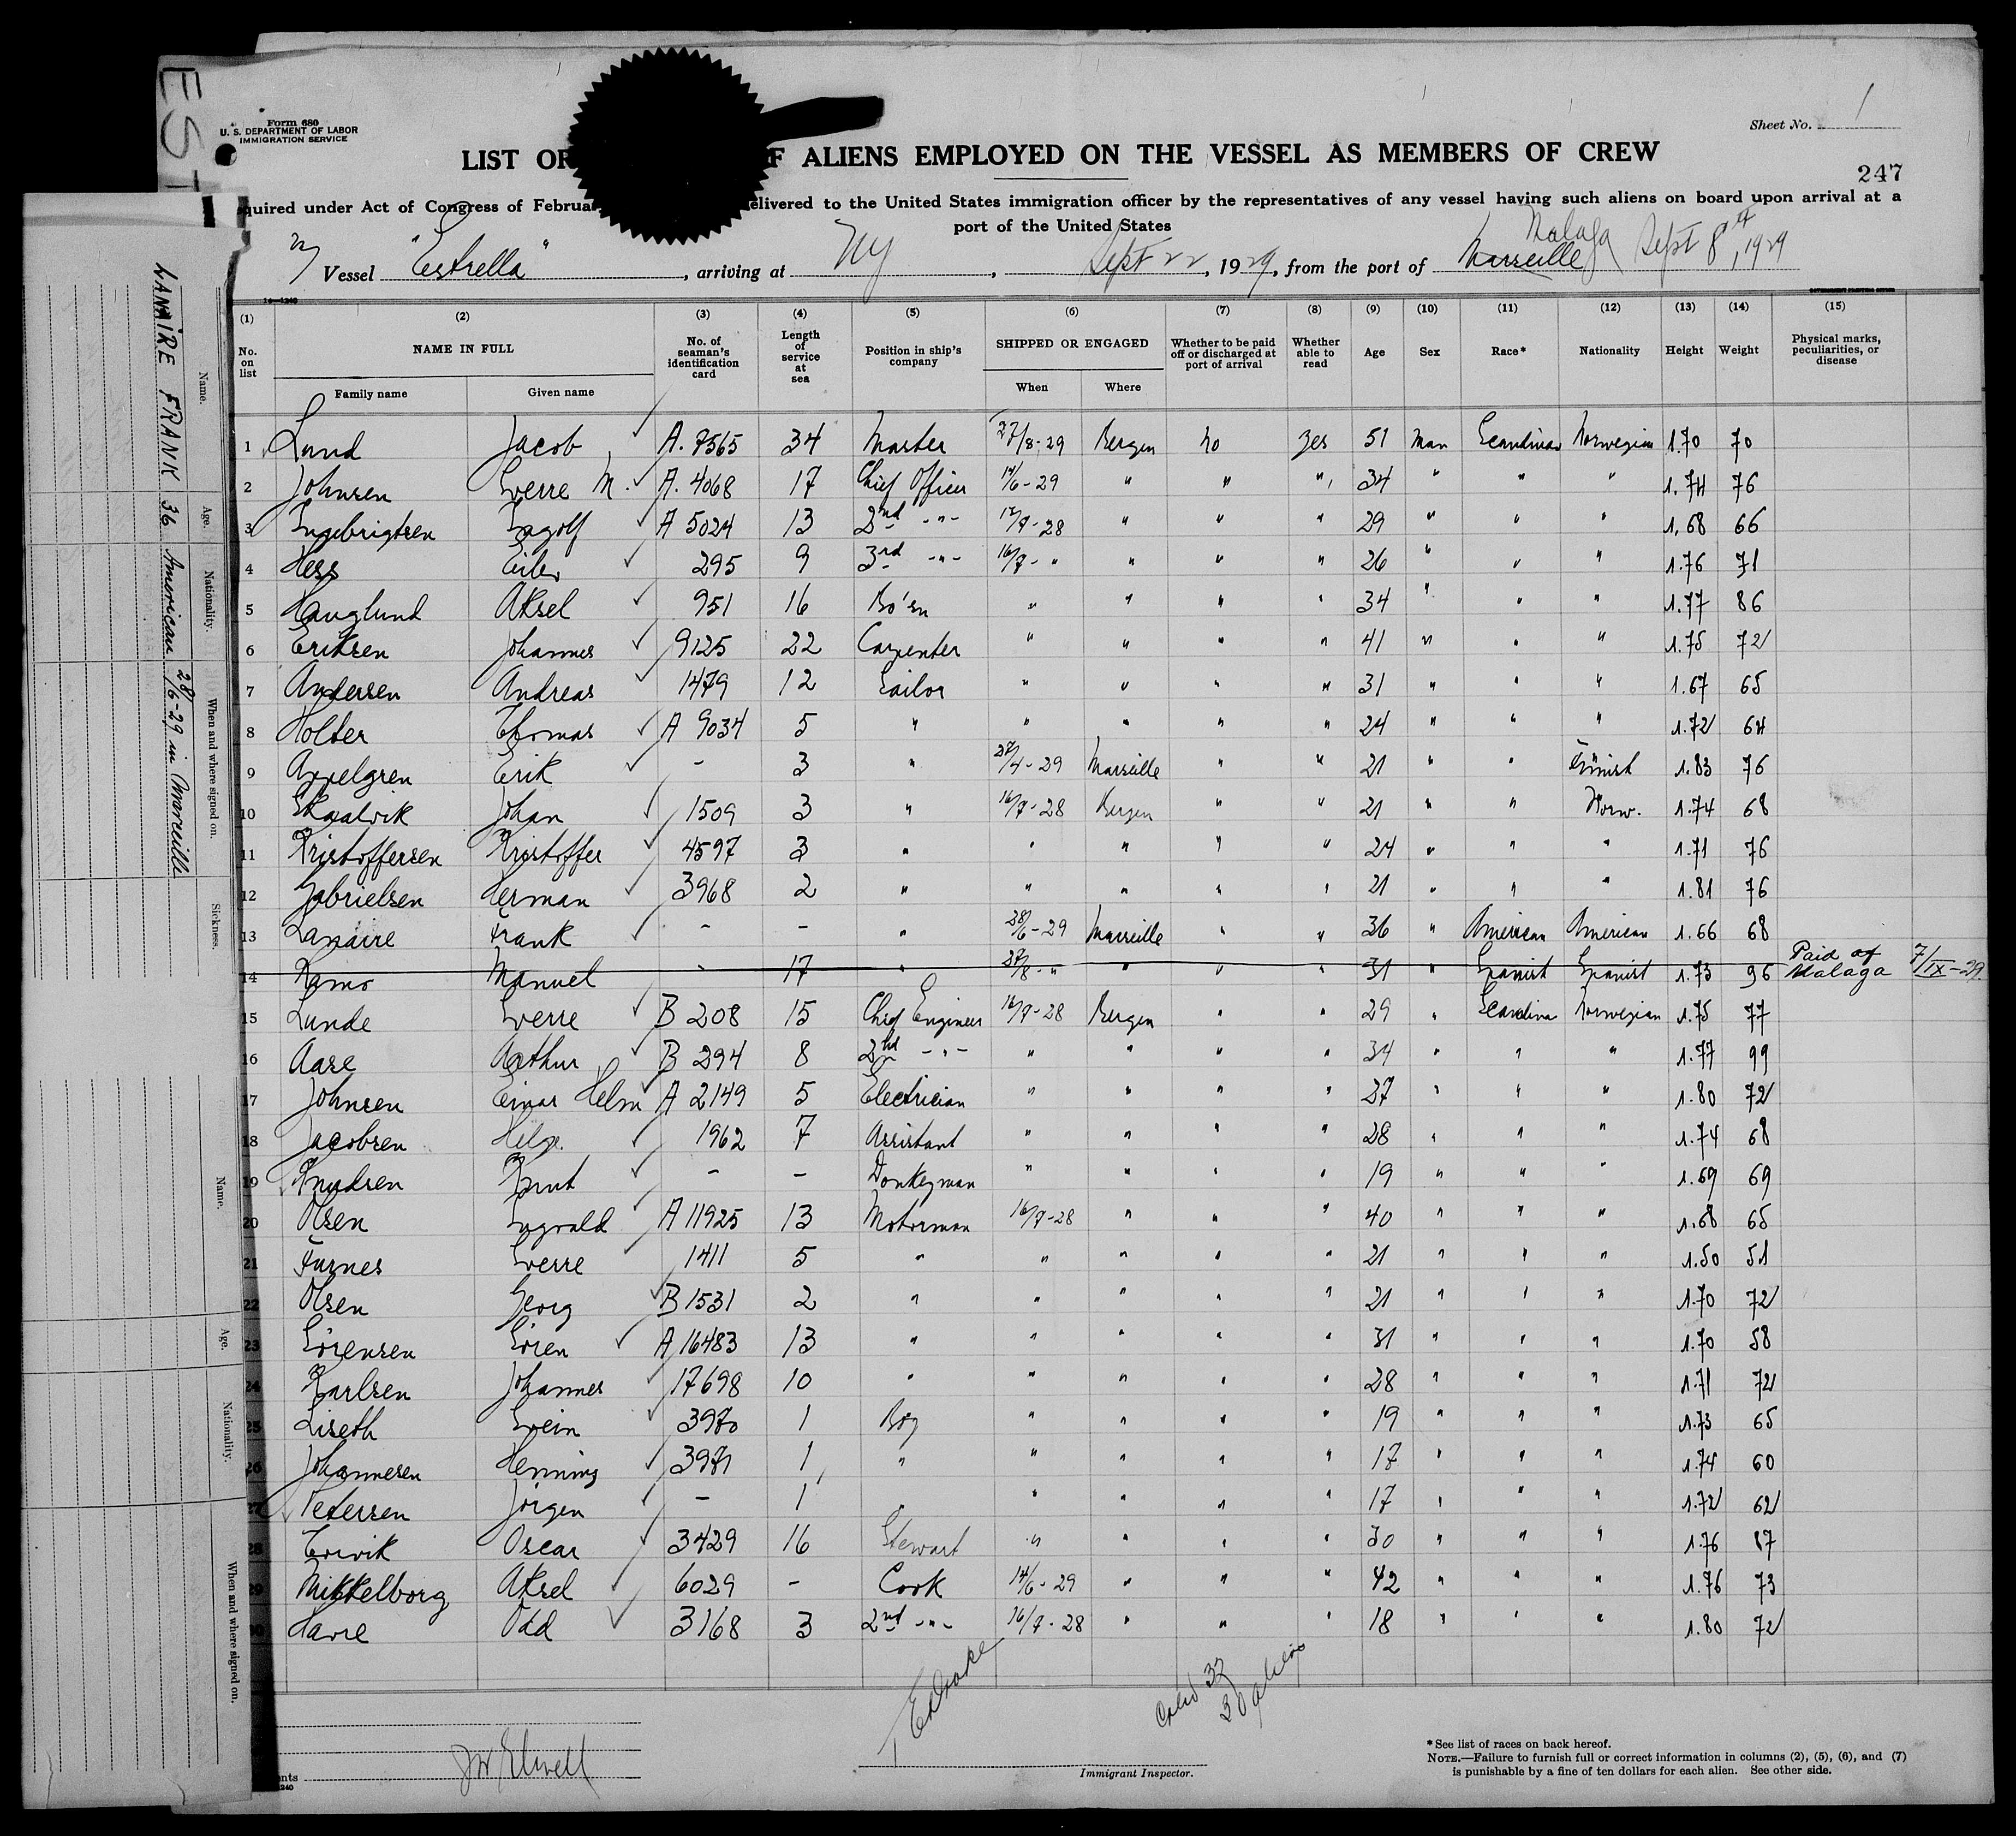 EST
Form 680
U. S. DEPARTMENT OF LABOR
IMMIGRATION SERVICE
Sheet No. 1
LIST OR F ALIENS EMPLOYED ON THE VESSEL AS MEMBERS OF CREW
247
quired under Act of Congress of Februa elivered to the United States immigration officer by the representatives of any vessel having such aliens on board upon arrival at a
port of the United States
Vessel "Estrella", arriving at NY, Sept 22, 1929, from the port of Marseille Malaga Sept 8th, 1929
(1) (2) (3) (4) (5) (6) (7) (8) (9) (10) (11) (12) (13) (14) (15)
No. on list NAME IN FULL No. of seaman's identification card Length of service at sea Position in ship's company SHIPPED OR ENGAGED Whether to be paid off or discharged at port of arrival Whether able to read Age Sex Race* Nationality Height Weight Physical marks, peculiarities, or disease
Family name Given name When Where
1 Lund Jacob A. 7565 34 Master 27/8-29 Bergen no yes 51 Man Scandinav Norwegian 1.70 70
2 Johnsen Sverre M. A. 4068 17 Chief Officer 14/6-29 " " " 34 " " " 1.74 76
3 Ingebrigtsen Ingolf A 5024 13 2nd -"- 17/7-28 " " " 29 " " " 1.68 66
4 Hess Eiler 295 9 3rd -"- 16/7-" " " " 26 " " " 1.76 71
5 Hauglund Aksel 951 16 Bo'sn " " " " 34 " " " 1.77 86
6 Eriksen Johannes 9125 22 Carpenter " " " " 41 " " " 1.75 72
7 Andersen Andreas 1479 12 Sailor " " " " 31 " " " 1.67 65
8 Holter Thomas A 9034 5 " " " " " 24 " " " 1.72 64
9 Appelgren Erik - 3 " 27/4-29 Marseille " " 21 " " Finnish 1.83 76
10 Skaalvik Johan 1509 3 " 16/7-28 Bergen " " 21 " " Norw. 1.74 68
11 Kristoffersen Kristoffer 4597 3 " " " " " 24 " " " 1.71 76
12 Gabrielsen Herman 3968 2 " " " " " 21 " " " 1.81 76
13 Lanaire Frank - - " 28/6-29 Marseille " " 36 " American American 1.66 68
14 Ramo Manuel - 17 " 27/8-" " " " 31 " Spanish Spanish 1.73 96 Paid of Malaga 7/IX-29.
15 Lunde Sverre B 208 15 Chief Engineer 16/7-28 Bergen " " 29 " Scandina Norwegian 1.75 77
16 Aase Arthur B 294 8 2nd -"- " " " " 34 " " " 1.77 99
17 Johnsen Einar Helm A 2149 5 Electrician " " " " 27 " " " 1.80 72
18 Jacobsen Helge 1962 7 Assistant " " " " 28 " " " 1.74 68
19 Knudsen Knut - - Donkeyman " " " " 19 " " " 1.69 69
20 Olsen Ingvald A 11925 13 Motorman 16/7-28 " " " 40 " " " 1.68 65
21 Furnes Sverre 1411 5 " " " " " 21 " " " 1.50 51
22 Olsen Georg B 1531 2 " " " " " 21 " " " 1.70 72
23 Sörensen Sören A 16483 13 " " " " " 31 " " " 1.70 58
24 Karlsen Johannes 17698 10 " " " " " 28 " " " 1.71 72
25 Liseth Svein 3970 1 Boy " " " " 19 " " " 1.73 65
26 Johannesen Henning 3971 1 " " " " " 17 " " " 1.74 60
27 Petersen Jörgen - 1 " " " " 17 " " " 1.72 62
28 Ervik Oscar 3429 16 Stewart " " " " 30 " " " 1.76 87
29 Mikkelborg Aksel 6029 - Cook 14/6-29 " " " 42 " " " 1.76 73
30 Havre Odd 3168 3 2nd -"- 16/7-28 " " " 18 " " " 1.80 72
32
30 aliens
JW Elwell
nts
240
Immigrant Inspector.
*See list of races on back hereof.
NOTE.—Failure to furnish full or correct information in columns (2), (5), (6), and (7)
is punishable by a fine of ten dollars for each alien. See other side.
Name. Age. Nationality. When and where signed on. Sickness.
LANAIRE FRANK 36 American 28/6-29 in Marseille
Name. Age. Nationality. When and where signed on.